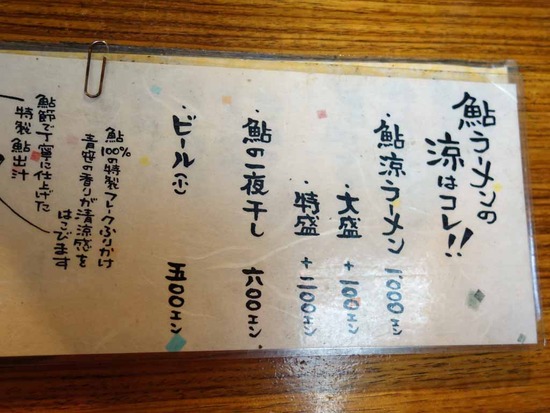 鮎ラーメンの
涼はコレ!!
・鮎涼ラーメン 1,000エン
・大盛 +100エン
・特盛 +二00エン
・鮎の一夜干し 六00エン
・ビール(小) 五00エン
鮎100%の特製フレークふりかけ
青笹の香りが清涼感を
はこびます
鮎節で丁寧に仕上げた
特製鮎出汁